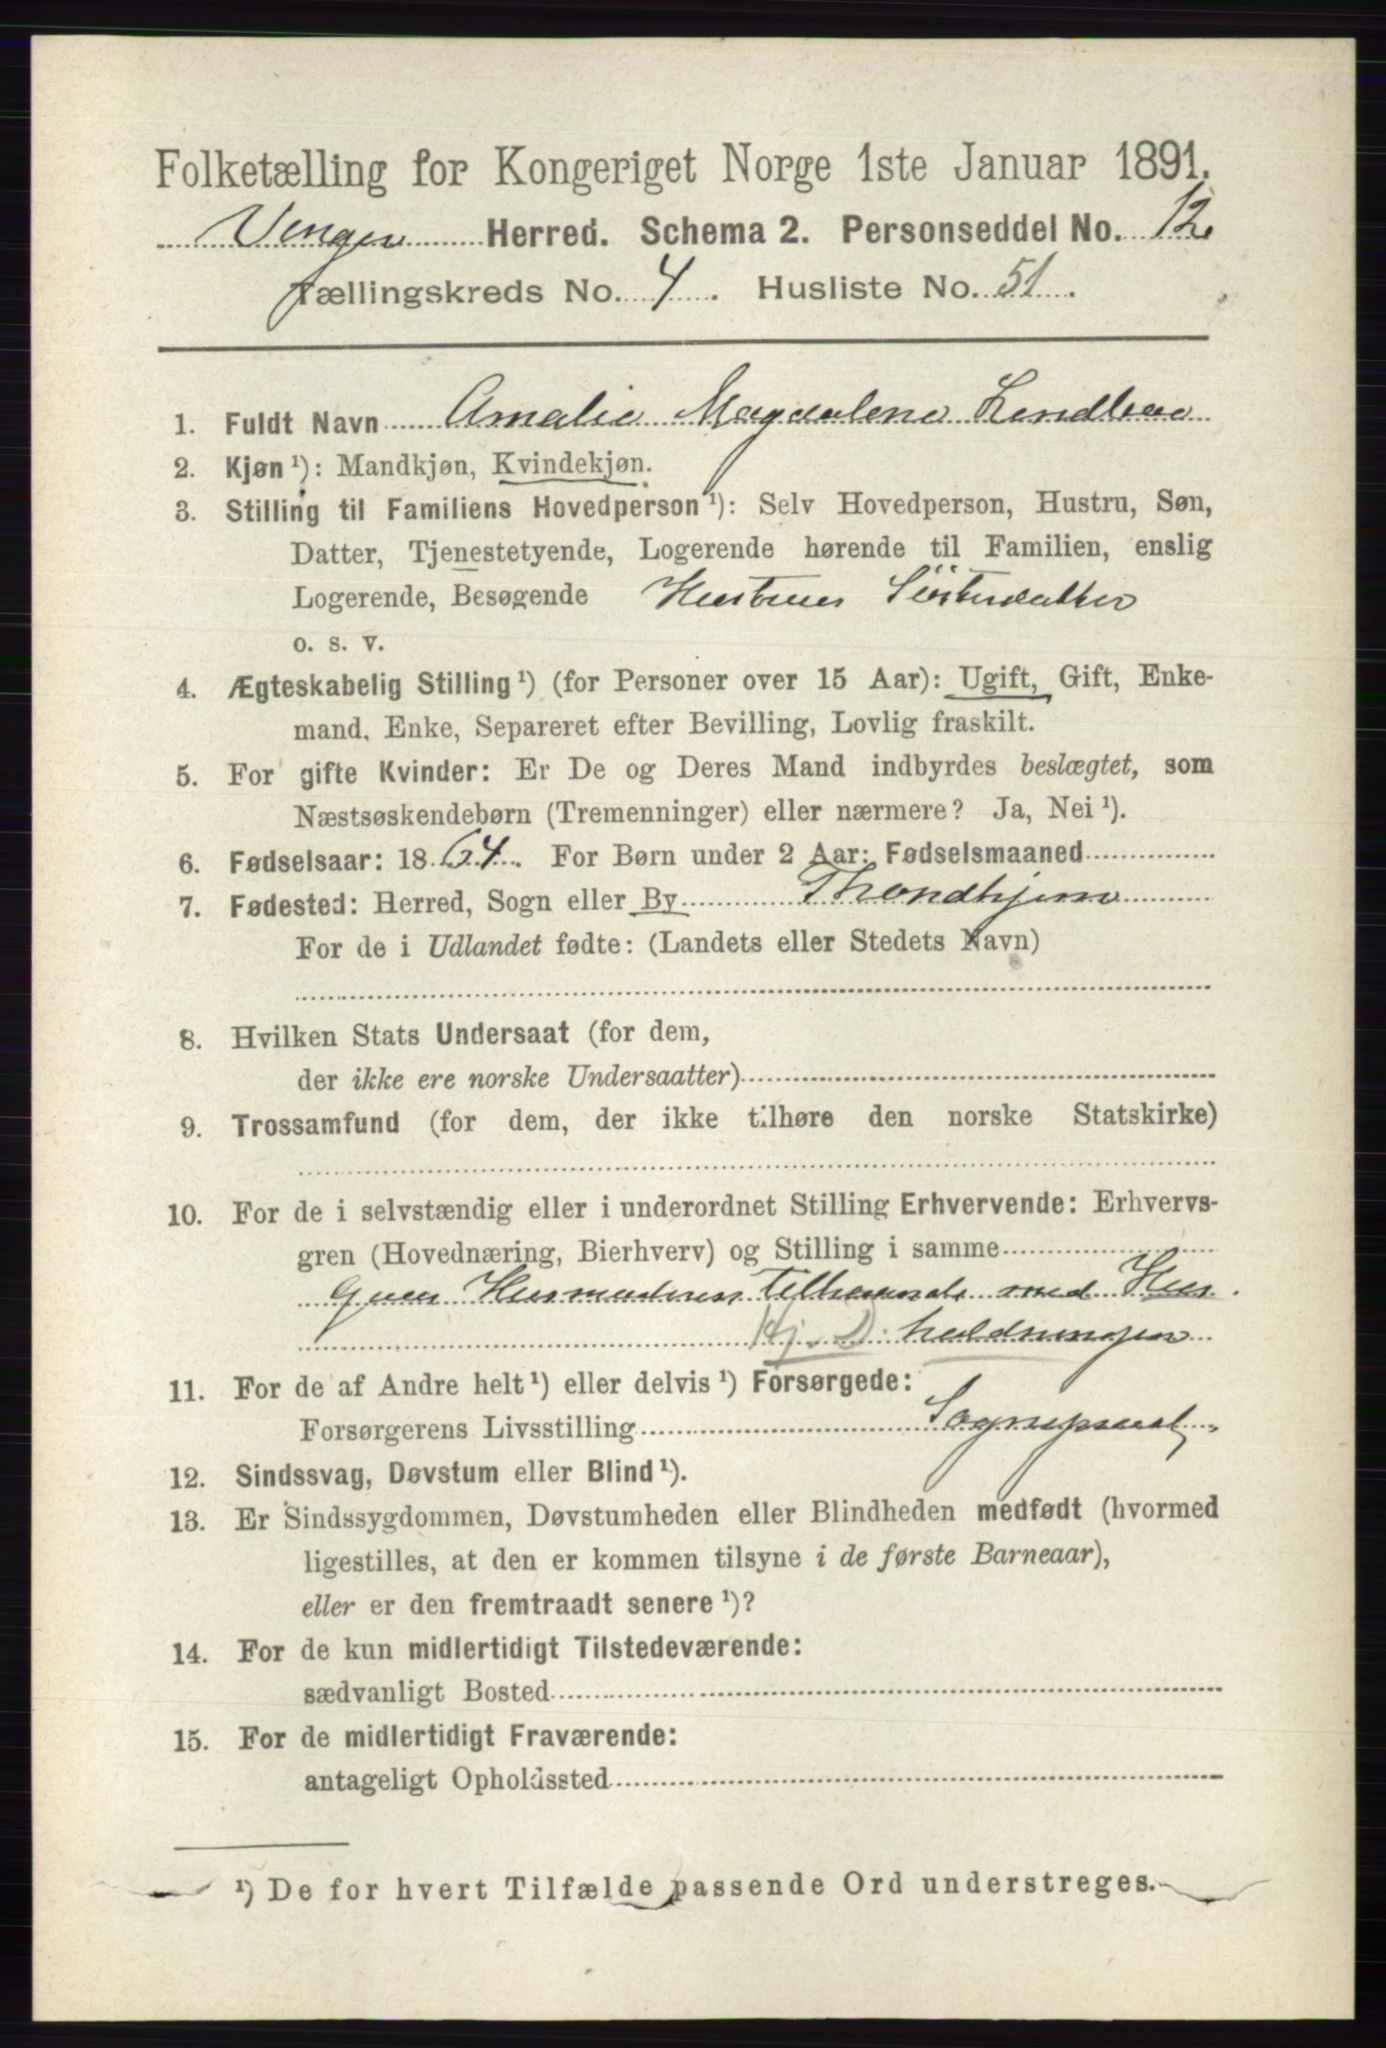 Folketælling for Kongeriget Norge 1ste Januar 1891.
Herred. Schema 2. Personseddel No. 12.
Tællingskreds No. 4. Husliste No. 51.
1. Fuldt Navn Amalie Magdalene
2. Kjøn ¹): Mandkjøn, Kvindekjøn.
3. Stilling til Familiens Hovedperson ¹): Selv Hovedperson, Hustru, Søn,
Datter, Tjenestetyende, Logerende hørende til Familien, enslig
Logerende, Besøgende Hustrues Søsterdatter
o. s. v.
4. Ægteskabelig Stilling ¹) (for Personer over 15 Aar): Ugift, Gift, Enke-
mand, Enke, Separeret efter Bevilling, Lovlig fraskilt.
5. For gifte Kvinder: Er De og Deres Mand indbyrdes beslægtet, som
Næstsøskendebørn (Tremenninger) eller nærmere? Ja, Nei ¹).
6. Fødselsaar: 1864. For Børn under 2 Aar: Fødselsmaaned
7. Fødested: Herred, Sogn eller By Throndhjem
For de i Udlandet fødte: (Landets eller Stedets Navn)
8. Hvilken Stats Undersaat (for dem,
der ikke ere norske Undersaatter)
9. Trossamfund (for dem, der ikke tilhøre den norske Statskirke)
10. For de i selvstændig eller i underordnet Stilling Erhvervende: Erhvervs-
gren (Hovednæring, Bierhverv) og Stilling i samme
Husmoderen Tilhaande med Hus
Hj. D. holdningen
11. For de af Andre helt ¹) eller delvis ¹) Forsørgede:
Forsørgerens Livsstilling Sognepræst
12. Sindssvag, Døvstum eller Blind ¹).
13. Er Sindssygdommen, Døvstumheden eller Blindheden medfødt (hvormed
ligestilles, at den er kommen tilsyne i de første Barneaar),
eller er den fremtraadt senere ¹)?
14. For de kun midlertidigt Tilstedeværende:
sædvanligt Bosted
15. For de midlertidigt Fraværende:
antageligt Opholdssted
¹) De for hvert Tilfælde passende Ord understreges.